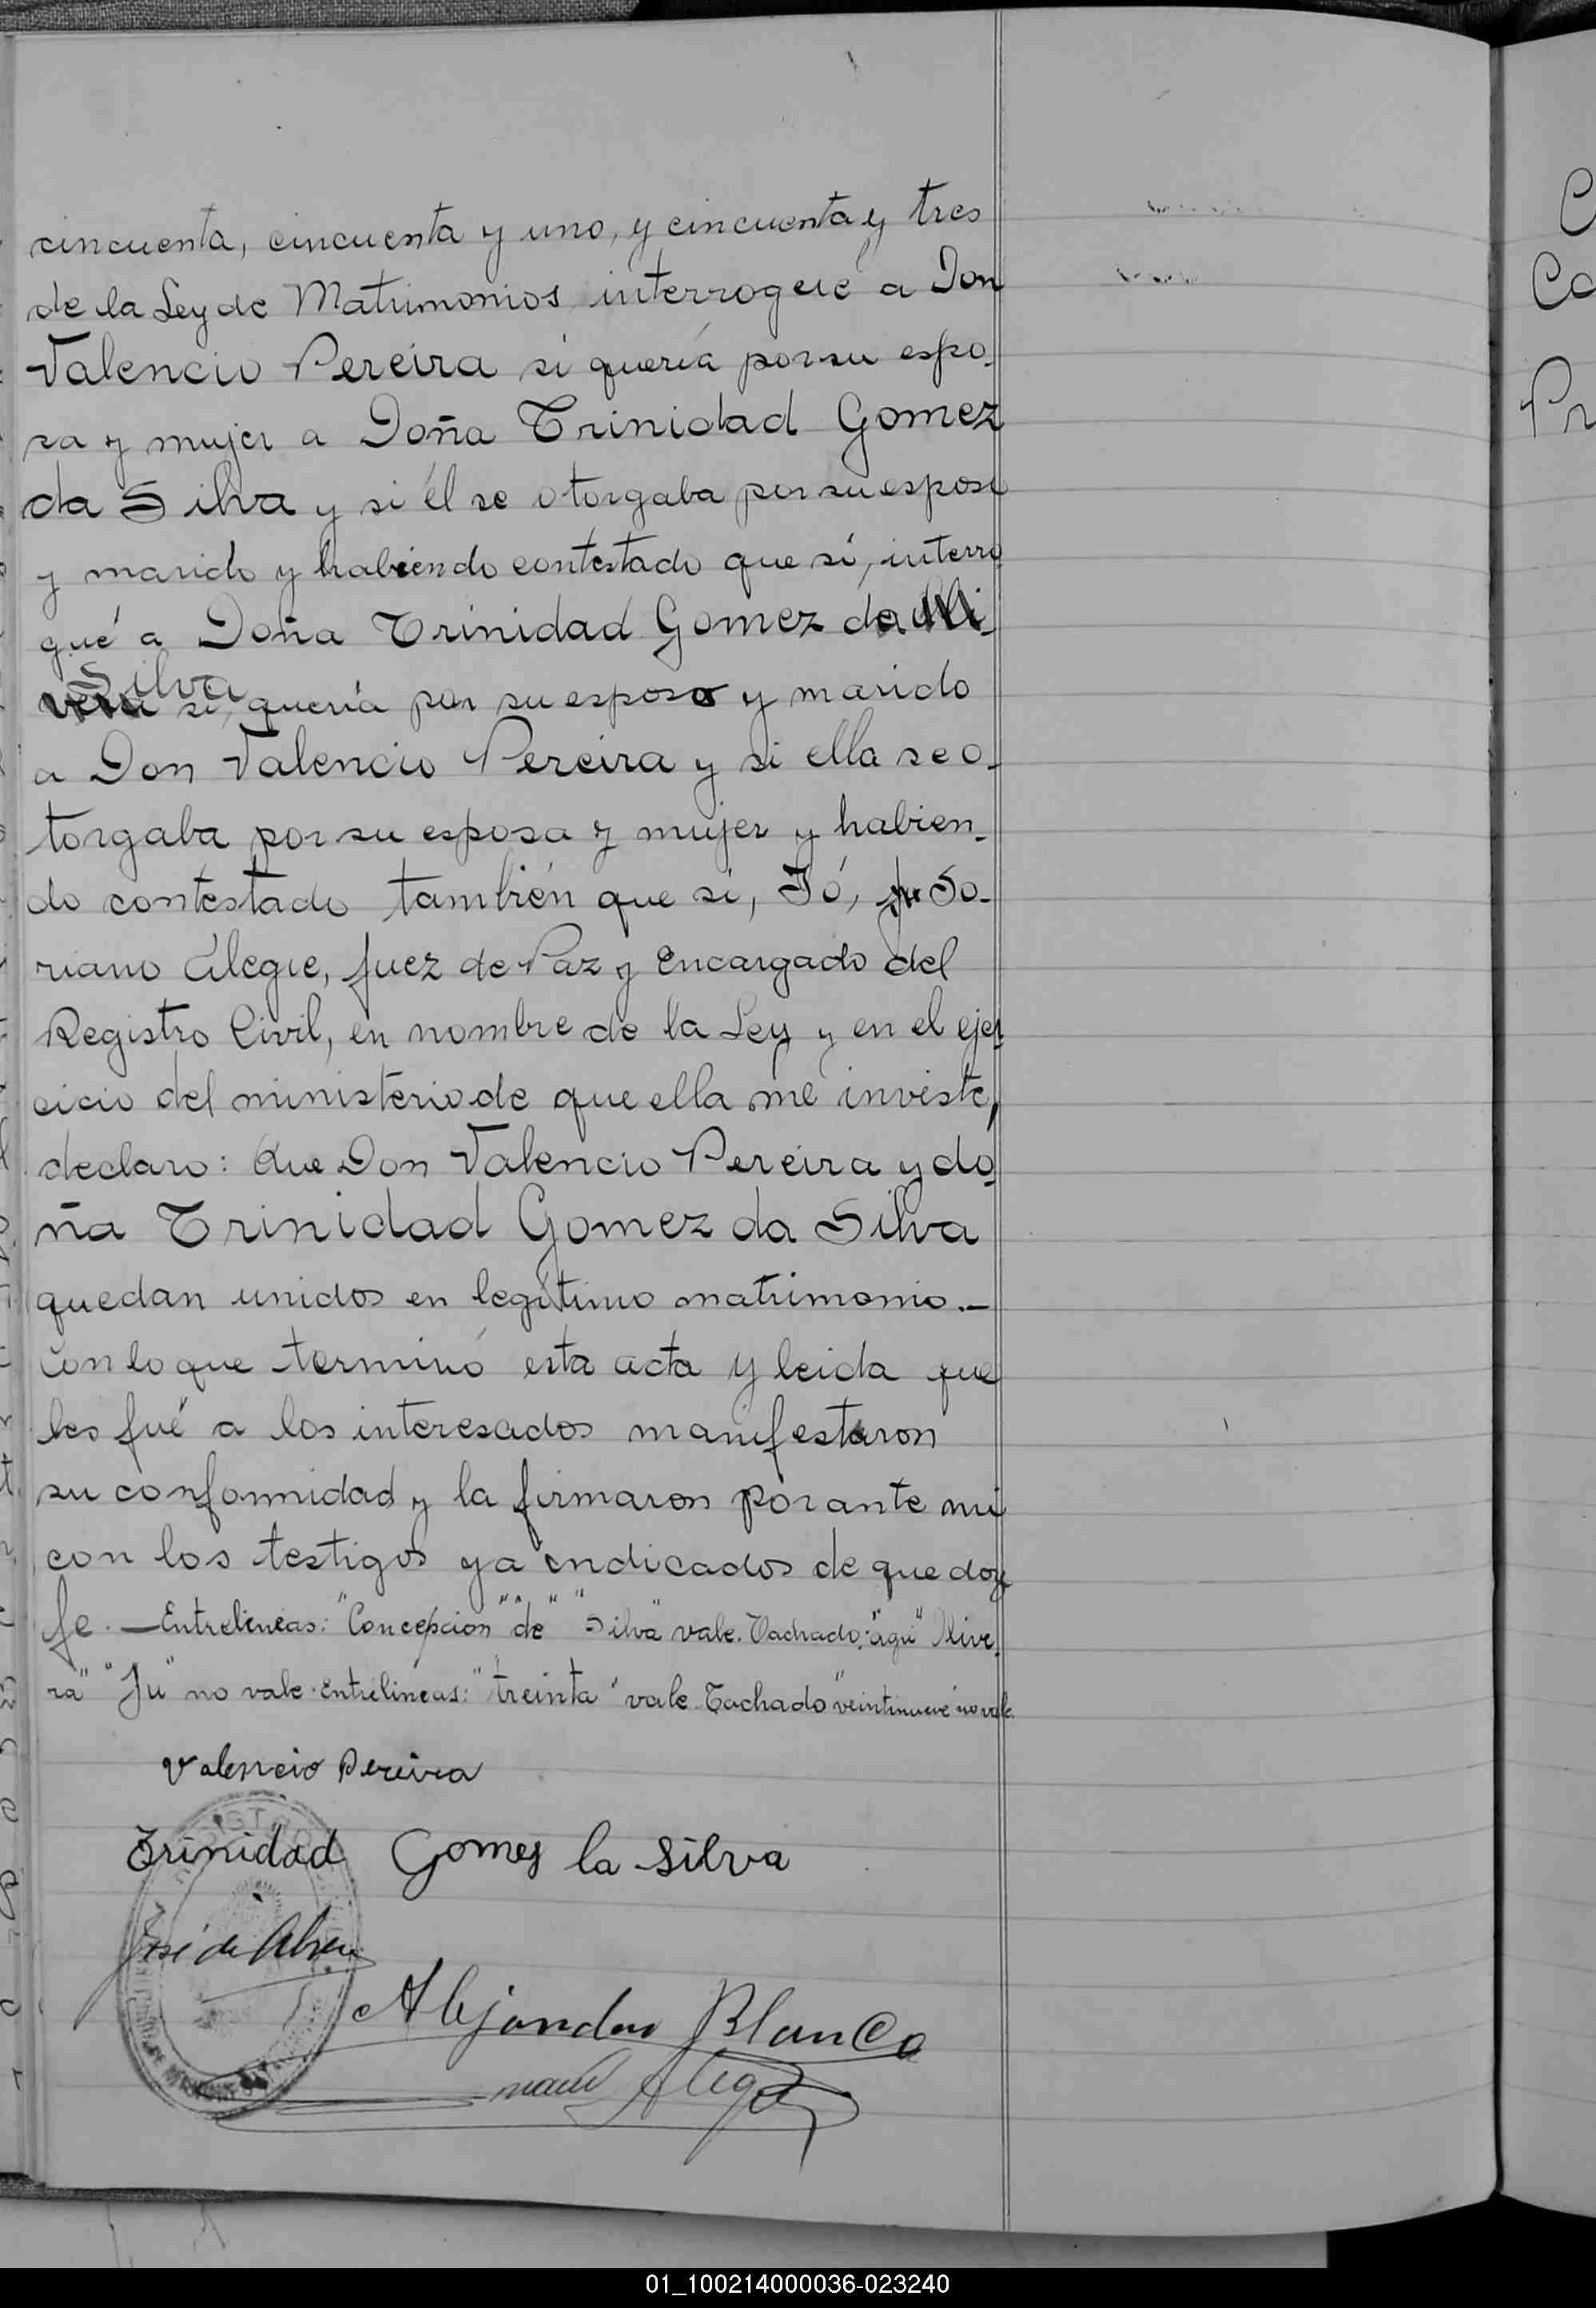 cincuenta, cincuenta y uno, y cincuenta y tres
de la Ley de Matrimonios interrogué a Don
Valencio Pereira si quería por su espo-
sa y mujer a Doña Trinidad Gomez
da Silva y si él se otorgaba por su esposo
y marido y habiendo contestado que sí, interro
gué a Doña Trinidad Gomez da Oli-
Silva
vera si, quería por su esposo y marido
a Don Valencio Pereira y si ella se o-
torgaba por su esposa y mujer y habien-
do contestado también que sí, Yó, Ju So-
riano Alegre, Juez de Paz y Encargado del
Registro Civil, en nombre de la Ley y en el ejer
cicio del ministerio de que ella me inviste,
declaro: Que Don Valencio Pereira y do
ña Trinidad Gomez da Silva
quedan unidos en legítimo matrimonio.-
Con lo que terminó esta acta y leida que
les fué a los interesados manifestaron
su conformidad y la firmaron por ante mi
con los testigos ya indicados de que doy
fe. — Entrelineas: "Concepcion" "de" "Silva" vale. Tachado: "agu" "Olive-
ra" "Ju" no vale. Entrelineas: "treinta" vale. Tachado "veintinueve" no vale.
Valencio Pereira
Trinidad Gomes la Silva
José de Abreu
Alejandro Blanco
Alegre
01_100214000036-023240
C
Co
Pr